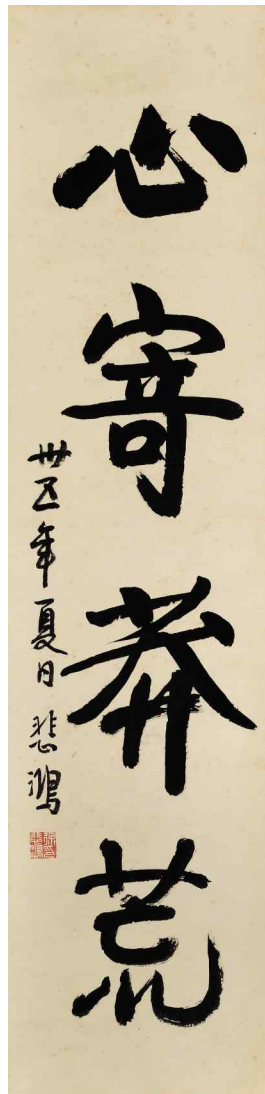 心寄莽荒
卅五年夏日 悲鴻